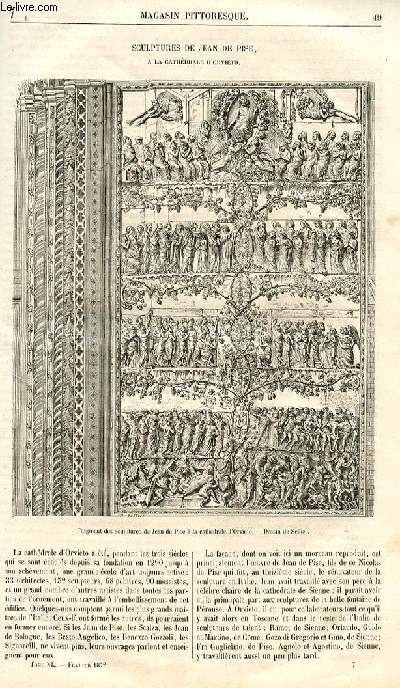 7
MAGASIN PITTORESQUE.
49
SCULPTURES DE JEAN DE PISE,
A LA CATHÉDRALE D'ORVIETO.
Fragment des sculptures de Jean de Pise à la cathédrale d'Orvieto. — Dessin de
La cathédrale d'Orvieto a été, pendant les trois siècles
qui se sont écoulés depuis sa fondation en 1290 jusqu'à
son achèvement, une grande école d'art toujours active:
33 architectes, 152 sculpteurs, 68 peintres, 90 mosaïstes,
et un grand nombre d'autres artistes dans toutes les par-
ties de l'ornement, ont travaillé à l'embellissement de cet
édifice. Quelques-uns comptent parmi les plus grands maî-
tres de l'Italie. Ceux-là l'ont formé les autres, ils pourraient
en former encore. Si les Jean de Pise, les Scalza, les Jean
de Bologne, les Beato Angelico, les Benozzo Gozzoli, les
Signorelli, ne vivent plus, leurs ouvrages parlent et ensei-
gnent pour eux
La façade, dont on voit ici un morceau reproduit, est
principalement l'œuvre de Jean de Pise, fils de ce Nicolas
de Pise qui fut, au treizième siècle, le rénovateur de la
sculpture en Italie. Jean avait travaillé avec son père à la
célèbre chaire de la cathédrale de Sienne; il paraît avoir
eu le principale part aux sculptures de la belle fontaine de
Pérouse. A Orvieto, il eut pour collaborateurs tout ce qu'il
y avait alors en Toscane et dans le reste de l'Italie de
sculpteurs de talent: Ramo, de Sienne; Orlando, Guido
et Martino, de Côme; Goro di Gregorio et Gino, de Sienne;
Fra Guglielmo, de Pise. Agnolo et Agostino, de Sienne,
y travaillèrent aussi un peu plus tard.
TOME XL. — FÉVRIER 1872
7